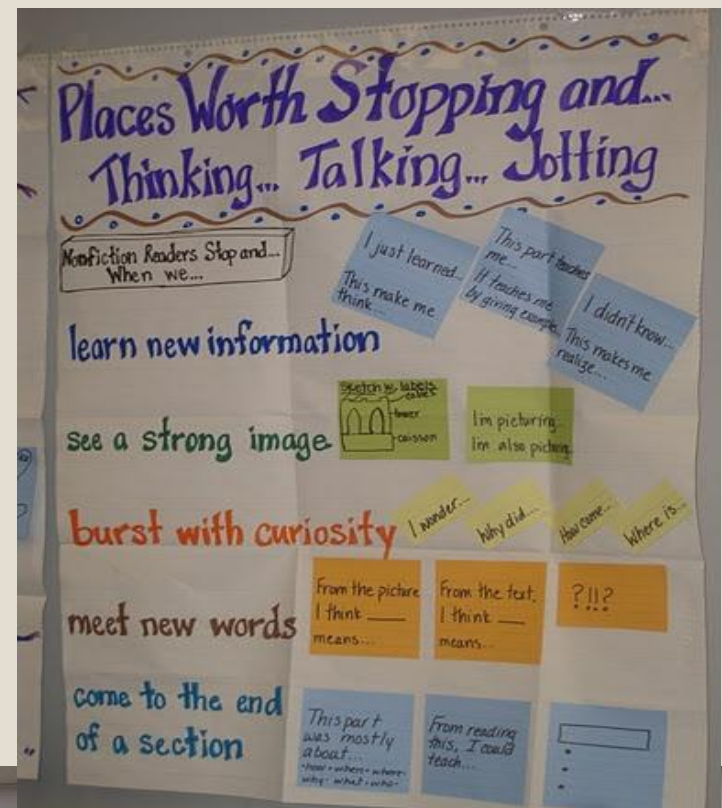 Places Worth Stopping and...
Thinking... Talking... Jotting
Nonfiction Readers Stop and...
When we...
I just learned...
This make me
think...
This part teaches
me...
It teaches me
by giving example
I didn't know...
This makes me
realize...
learn new information
see a strong image
Sketch w/ labels
cables
tower
caisson
I'm picturing...
I'm also picturing
burst with curiosity
I wonder...
Why did...
How come...
Where is...
meet new words
From the picture
I think ____
means...
From the text,
I think ____
means...
?!!?
come to the end
of a section
This part
was mostly
about...
-how-when-where-
why-what-who-
From reading
this, I could
teach...